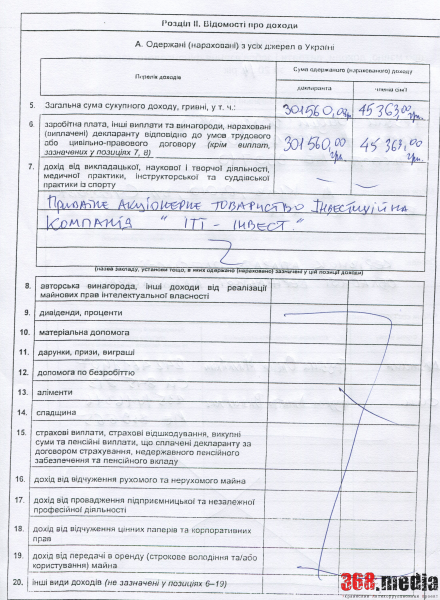 Розділ II. Відомості про доходи
А. Одержані (нараховані) з усіх джерел в Україні
Перелік доходів
Сума одержаного (нарахованого) доходу
декларанта
членів сім'ї
5. Загальна сума сукупного доходу, гривні, у т. ч.: 301560,00 грн. 45363,00 грн.
6. заробітна плата, інші виплати та винагороди, нараховані
(виплачені) декларанту відповідно до умов трудового
або цивільно-правового договору (крім виплат,
зазначених у позиціях 7, 8)
301560,00 грн. 45363,00 грн.
7. дохід від викладацької, наукової і творчої діяльності,
медичної практики, інструкторської та суддівської
практики із спорту
Приватне акціонерне товариство Інвестиційна
компанія " ІТІ - Інвест "
(назва закладу, установи тощо, в яких одержано (нараховано) зазначені у цій позиції доходи)
8. авторська винагорода, інші доходи від реалізації
майнових прав інтелектуальної власності
9. дивіденди, проценти
10. матеріальна допомога
11. дарунки, призи, виграші
12. допомога по безробіттю
13. аліменти
14. спадщина
15. страхові виплати, страхові відшкодування, викупні
суми та пенсійні виплати, що сплачені декларанту за
договором страхування, недержавного пенсійного
забезпечення та пенсійного вкладу
16. дохід від відчуження рухомого та нерухомого майна
17. дохід від провадження підприємницької та незалежної
професійної діяльності
18. дохід від відчуження цінних паперів та корпоративних
прав
19. дохід від передачі в оренду (строкове володіння та/або
користування) майна
20. інші види доходів (не зазначені у позиціях 6–19)
368.media